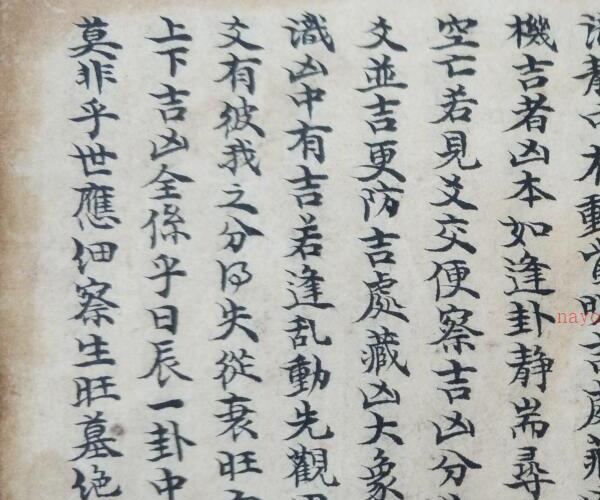 靜中有動當明吉處藏
機吉者凶本如逢卦静耑尋
空亡若見爻交便察吉凶分
爻並吉更防吉處藏凶大象
識凶中有吉若逢乱動先觀用
爻有彼我之分得失從衰旺
上下吉凶全係乎日辰一卦中
莫非乎世應细察生旺墓绝
nayo